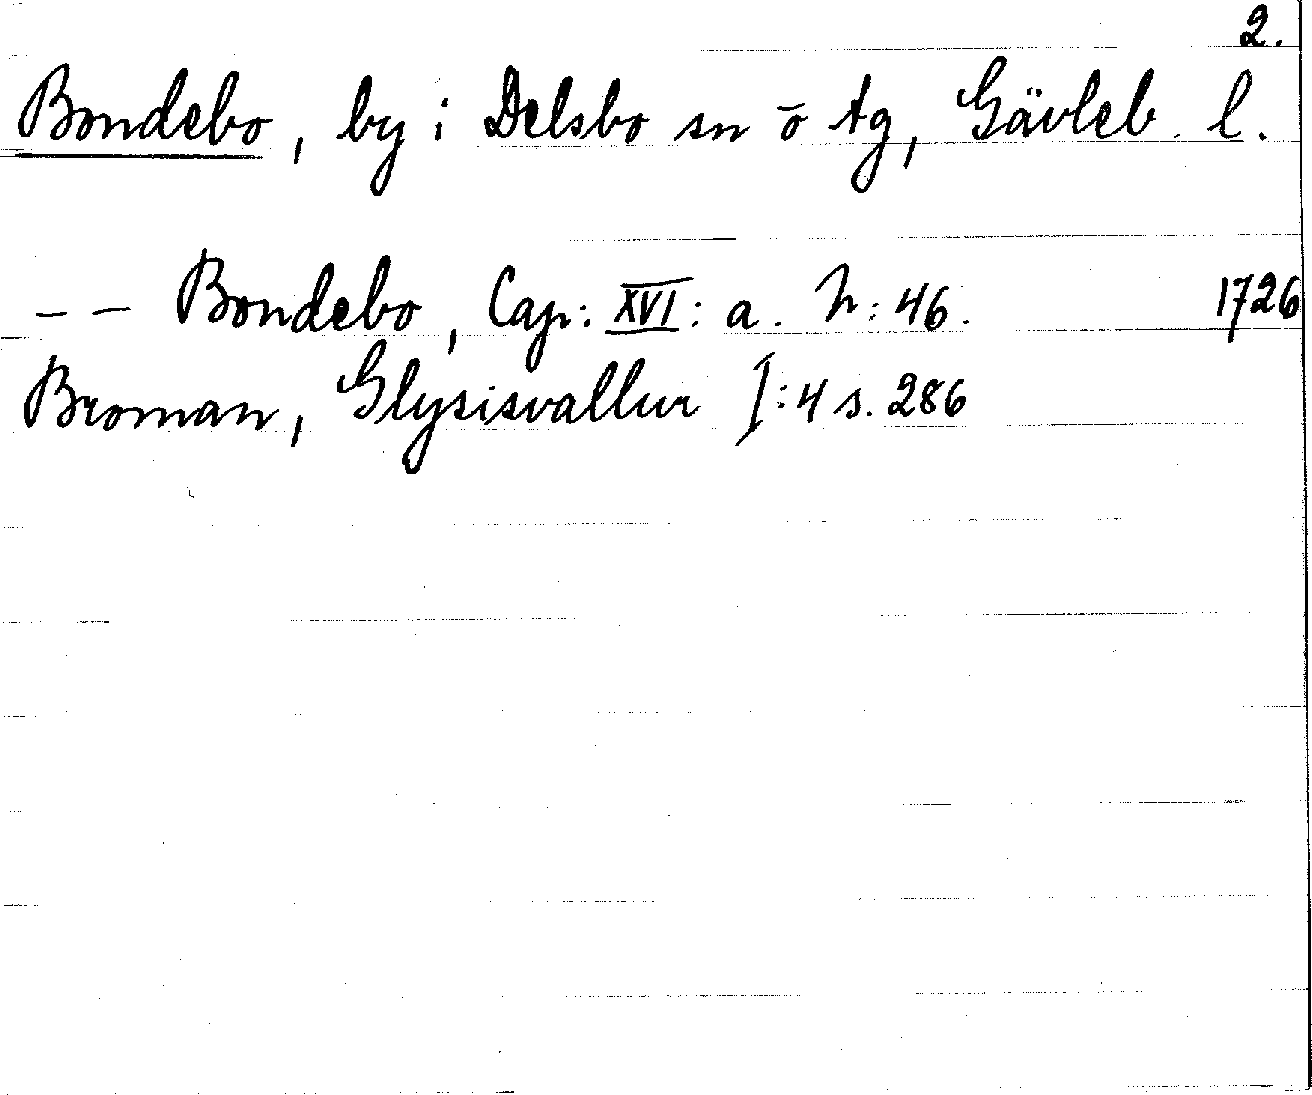 2.
Bondebo, by i Delsbo sn o tg, Gävleb. l.
-- Bondebo, Cap: XVI: a. N: 46. 1726
Broman, Glysisvallur I:4 s. 286